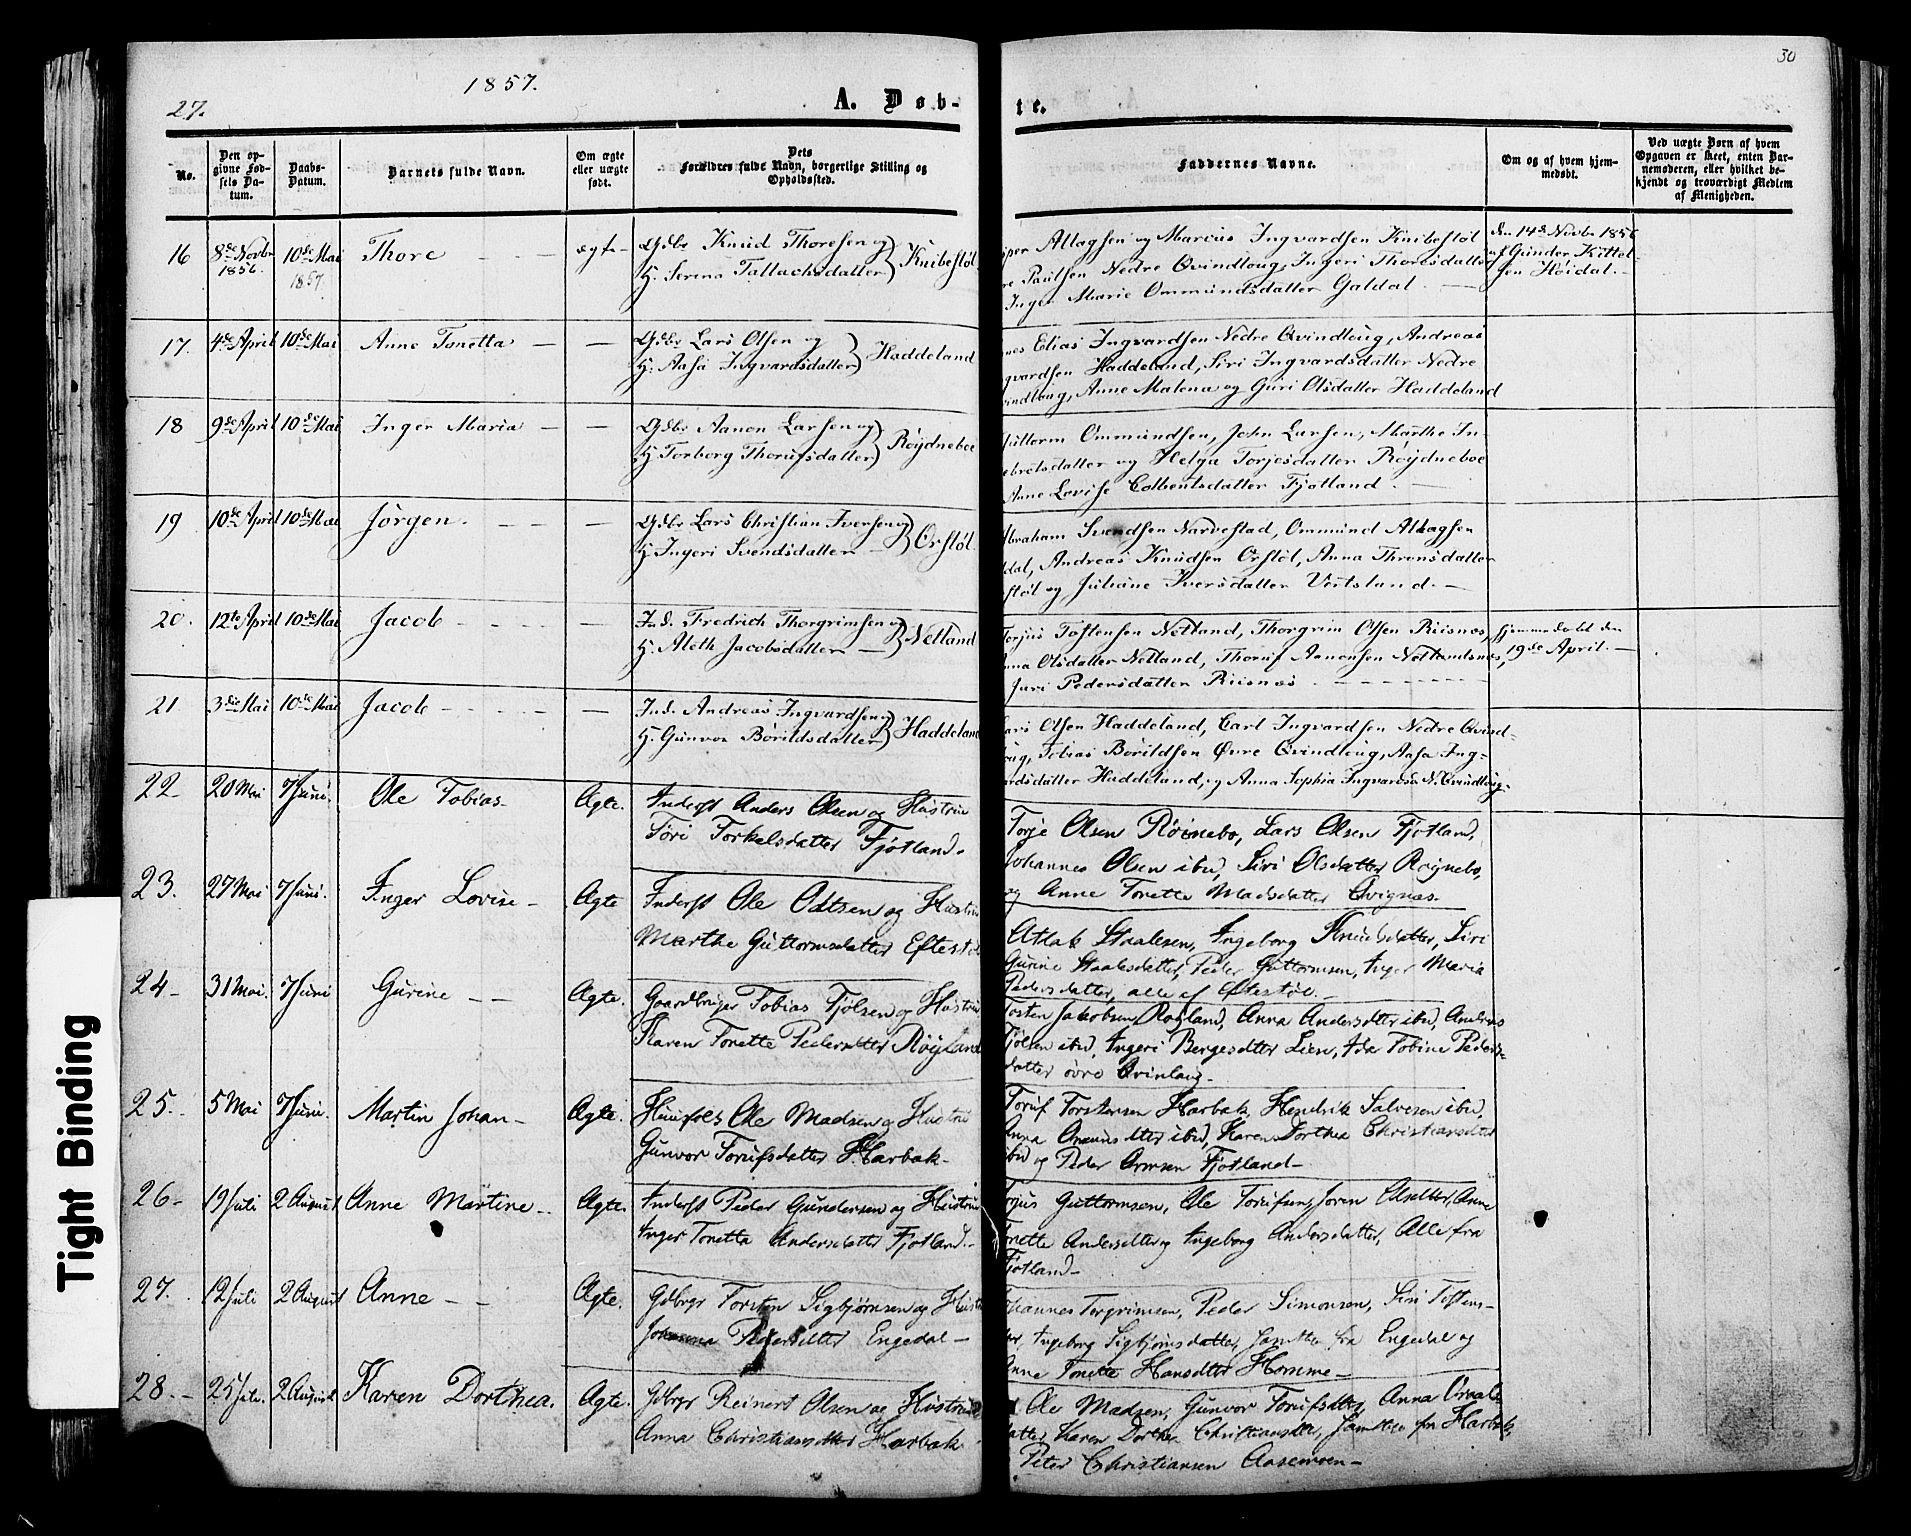 30
1857.
27.
A. Døb-
te.
No.
Den opgivne Fødsels Datum.
Daabs-Datum.
Barnets fulde Navn.
Om ægte eller uægte født.
Dets Forældres fulde Navn, borgerlige Stilling og Opholdssted.
Faddernes Navne.
Om og af hvem hjemmedøbt.
Ved uægte Børn af hvem Opgaven er skeet, enten Barnemoderen, eller hvilket bekjendt og troværdigt Medlem af Menigheden.
16 8de Novbr 1856. 10de Mai 1857. Thore ægte
Gdbr Knud Thoresen og
H. Serena Tallachsdatter Knibestøl
Atlagsen og Marcus Ingvardsen Knibestøl
Paulsen Nedre Qvindloug, Ingeri Thoresdatter
Inger Marie Ommundsdatter Galdal.
den 14de Novbr 1856
af Gunder Kittel-
sen Høidal.
17. 4de April 10de Mai Anne Tonetta
Gdbr Lars Olsen og
H. Aasa Ingvardsdatter Haddeland
Elias Ingvardsen Nedre Qvindloug, Andreas
gvardsen Haddeland, Siri Ingvardsdatter Nedre
indloug, Anne Malena og Guri Olsdatter Haddeland
18 9de April 10de Mai Inger Maria
Gdbr Aanon Larsen og
H. Torborg Thorufsdatter Røydneboe
Guttorm Ommundsen, John Larsen, Marthe In-
ebretsdatter og Helga Torjesdatter Røydneboe
Anne Lovise Colbentsdatter Fjotland.
19 10de April 10de Mai Jørgen.
Gdbr Lars Christian Iversen og
H. Ingeri Svendsdatter Orstøl.
Abraham Svendsen Narvestad, Ommund Atlagsen
dal, Andreas Knudsen Orstøl, Anna Thronsdatter
støl og Juliane Iversdatter Vertsland.
20. 12te April 10de Mai Jacob
Ind. Fredrich Thorgrimsen og
H. Aleth Jacobsdatter Netland
Torjus Tostensen Netland, Thorgrim Olsen Riisnes,
nna Olsdatter Netland, Thoruf Aanensen Netlandsnes,
Juri Pedersdatter Riisnes.
Hjemmedøbt den
19de April.
21 3die Mai 10de Mai Jacob
Ind. Andreas Ingvardsen og
H. Gunvor Børildsdatter Haddeland
Lars Olsen Haddeland, Carl Ingvardsen Nedre Qvind-
oug, Tobias Børildsen Øvre Qvindloug, Aasa Ing-
ardsdatter Haddeland, og Anna Sophia Ingvardsd. N. Qvindloug.
22 20 Mai 7 Juni. Ole Tobias. Ægte.
Inderst Anders Olsen og Hustrue
Siri Torkelsdatter Fjotland.
Torje Olsen Røinebo, Lars Olsen Fjotland,
Johannes Olsen ibid, Siri Olsdatter Røynebo,
og Anne Tonette Madsdatter Qvignæs.
23. 27 Mai 7 Juni. Inger Lovise Ægte
Inderst Ole Odtsen og Hustrue
Marthe Guttormsdatter Eftestø
Atlak Staalesen, Ingeborg Knudsdatter, Siri
Gurine Staalesdatter, Peder Guttormsen, Inger Maria
Pedersdatter, alle af Eftestøl.
24 31 Mai. 7 Juni Gurine Ægte.
Gaardbruger Tobias Fjølsen og Hustrue
Karen Tonette Pedersdtter Røyland
Tosten Jakobsen Røyland, Anna Andersdtter ibid, Andreas
Fjølsen ibid, Ingeri Bergesdtter Lien, Ida Tobine Peders-
datter øvre Qvinlaug.
25. 5 Mai 7 Juni. Martin Johan Ægte.
Huusfolk Ole Madsen og Hustrue
Gunvor Torufsdatter Harbak.
Toruf Torstensen Harbak, Hendrik Salvesen ibid,
Anna dtter ibid, Karen Dorthea Christiansdtter
ibid og Peder Fjotland
26 19 Juli 2 August Anne Martine Ægte.
Inderst Peder Gundersen og Hustrue
Inger Tonetta Andersdatter Fjotland.
Torjus Guttormsen, Ole Torufsen, Joren Olsdtter, Anne
Tonette Andersdtter og Ingeborg Andersdatter, Alle fra
Fjotland
27. 12 Juli 2 August Anne Ægte.
Gdbrgr Torsten Sigbjørnsen og Hustr
Johanna Pedersdtter Engedal
hannes Torgrimsen, Peder Simonsen, Siri Tostens-
Ingeborg Sigbjørnsdatter, Samtlige fra Engedal og
Anne Tonette Hansdtter Homme
28. 25 Juli. 2 August Karen Dorthea. Ægte.
Gdbrgr Reinert Olsen og Hustrue
Anna Christiansdtter Harbak
Ole Madsen, Gunvor Torufsdtter, Anna
atter Karen Dorthea Christiansdtr, Samtlige fra Harbak,
Peter Christiansen Aasemoen
Tight Binding